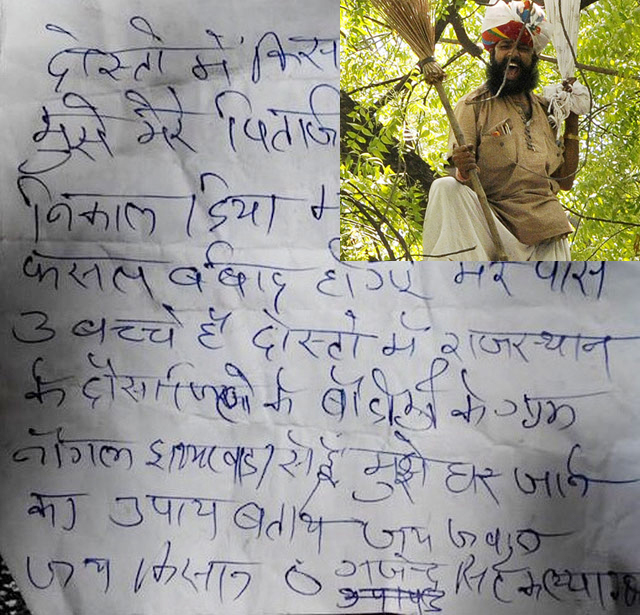 दोस्तो में किस
मुझे मेरे पिताजी
निकाल दिया
फसल बर्बाद होगए मेरे पास
3 बच्चे हैं दोस्तो में राजस्थान
के दौसा जिले के के ग्राम
नाँगल से हूँ मुझे घर जाने
का उपाय बताये जय जवान
जय किसान गजेन्द्र सिंह कल्याणवत